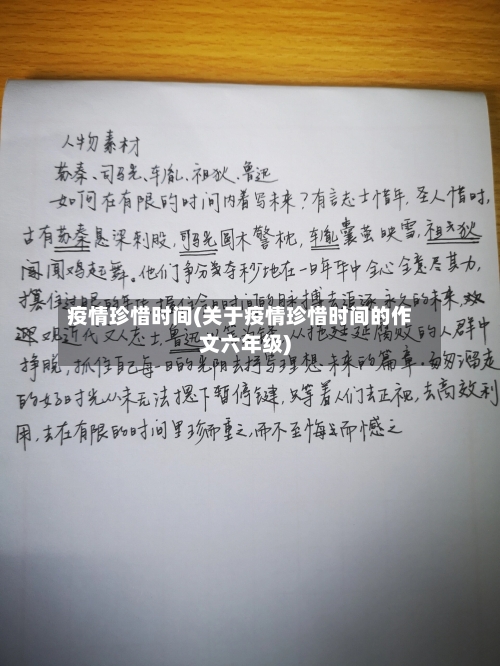 人物素材
苏秦、司马光、车胤、祖狄、鲁迅
如何在有限的时间内着写未来?有言志士惜年,圣人惜时,
古有苏秦悬梁刺股,司马光圆木警枕,车胤囊萤映雪,祖狄
闻鸡起舞。他们争分夺秒地在一日年华中全心全意尽其力,
疫情珍惜时间(关于疫情珍惜时间的作
文六年级)
挣脱,抓住自己每一日的光阴去抒写理想未来的篇章。匆匆溜走
的好时光从未无法摁下暂停键,只等着人们去正视,去高效利
用,去在有限的时间里珍而重之,而不至悔之而憾之